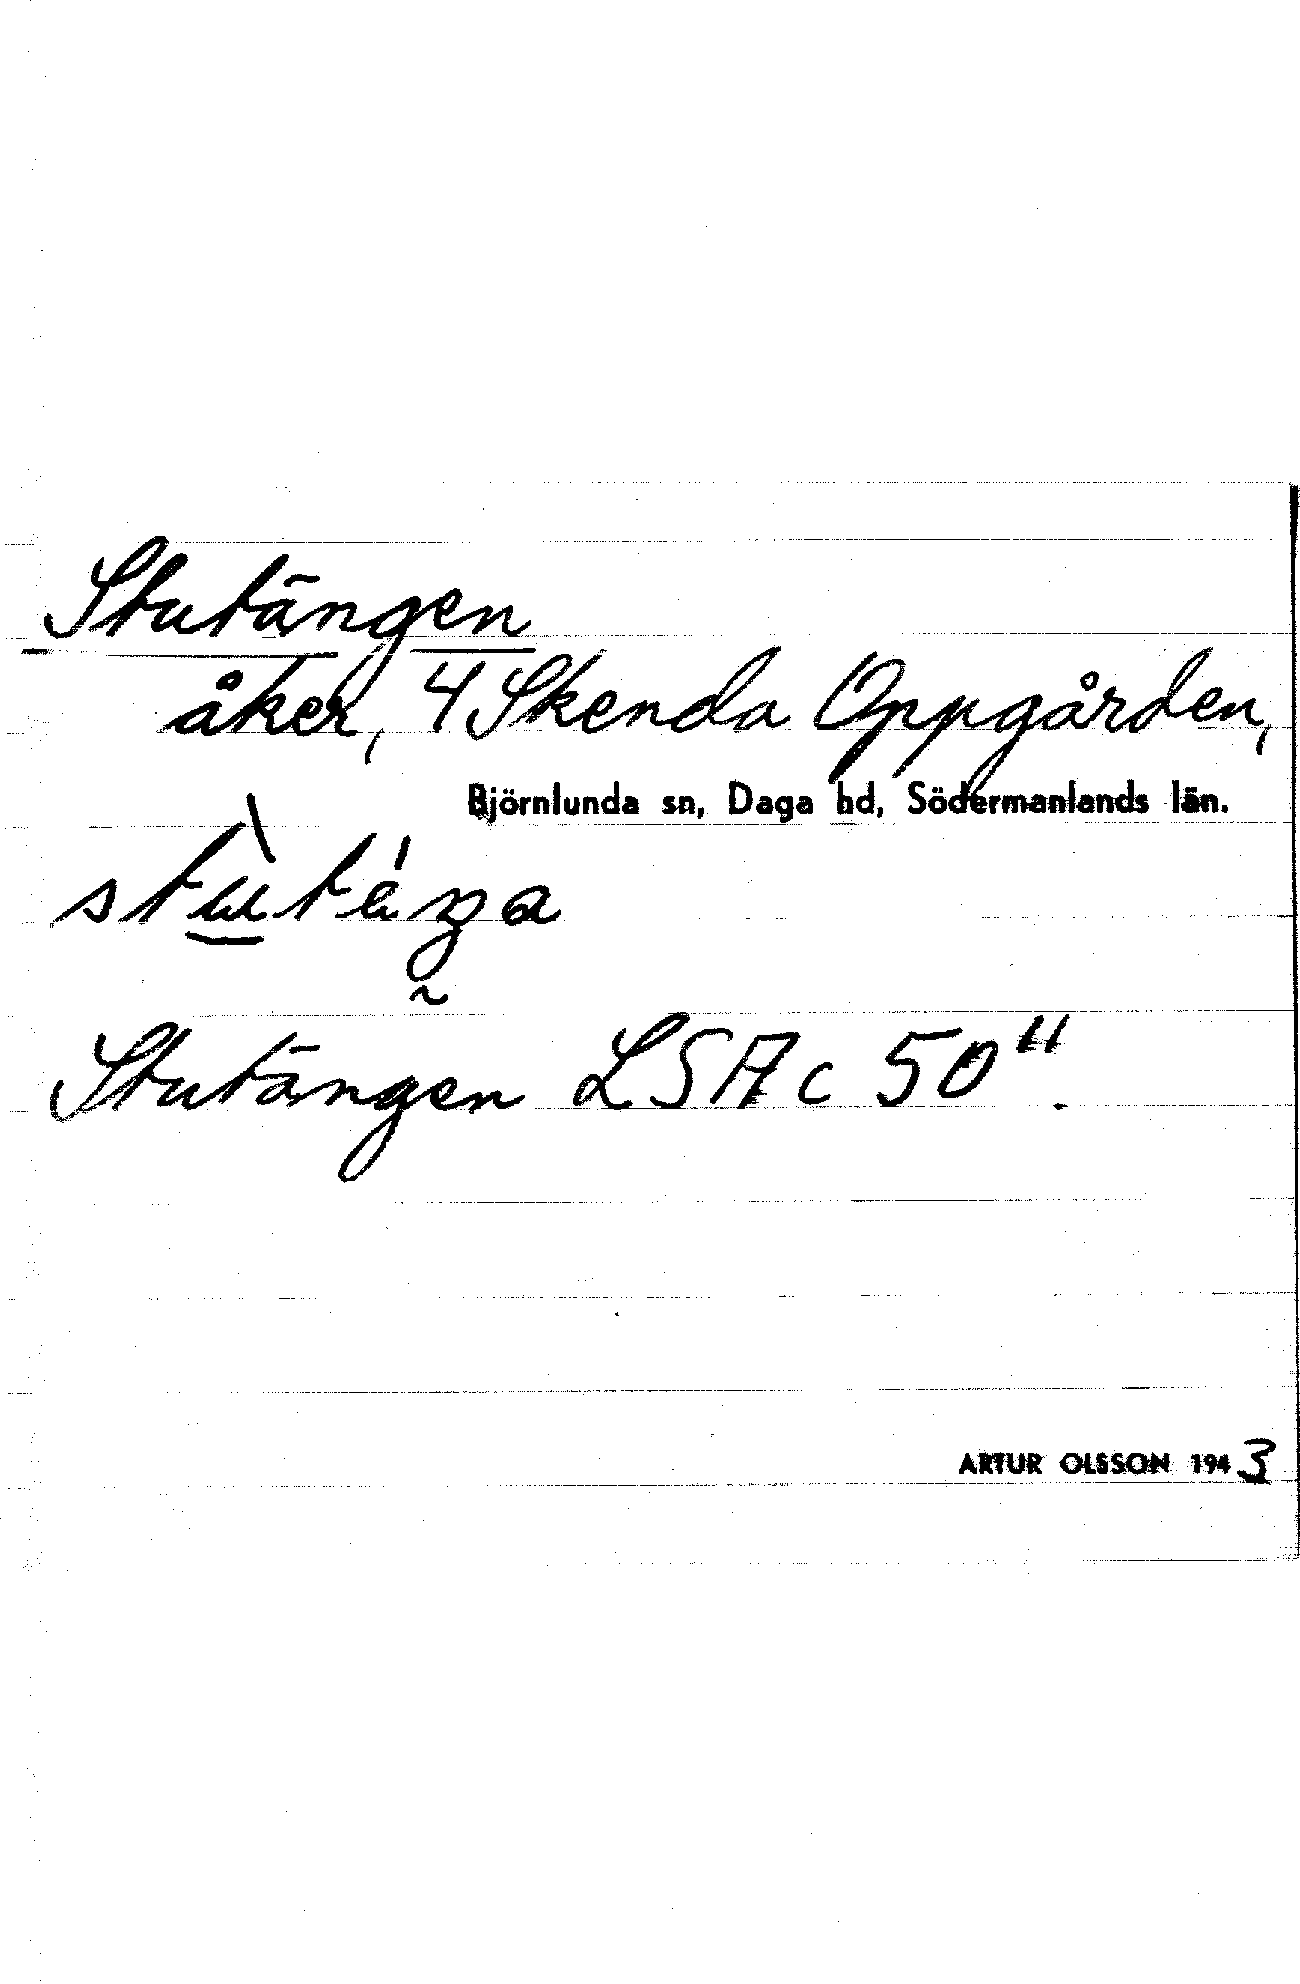 Stutängen
åker, 4 Skenda Oppgården,
Björnlunda sn, Daga hd, Södermanlands län.
Stutängen LSA c 50".
ARTUR OLSSON 1943